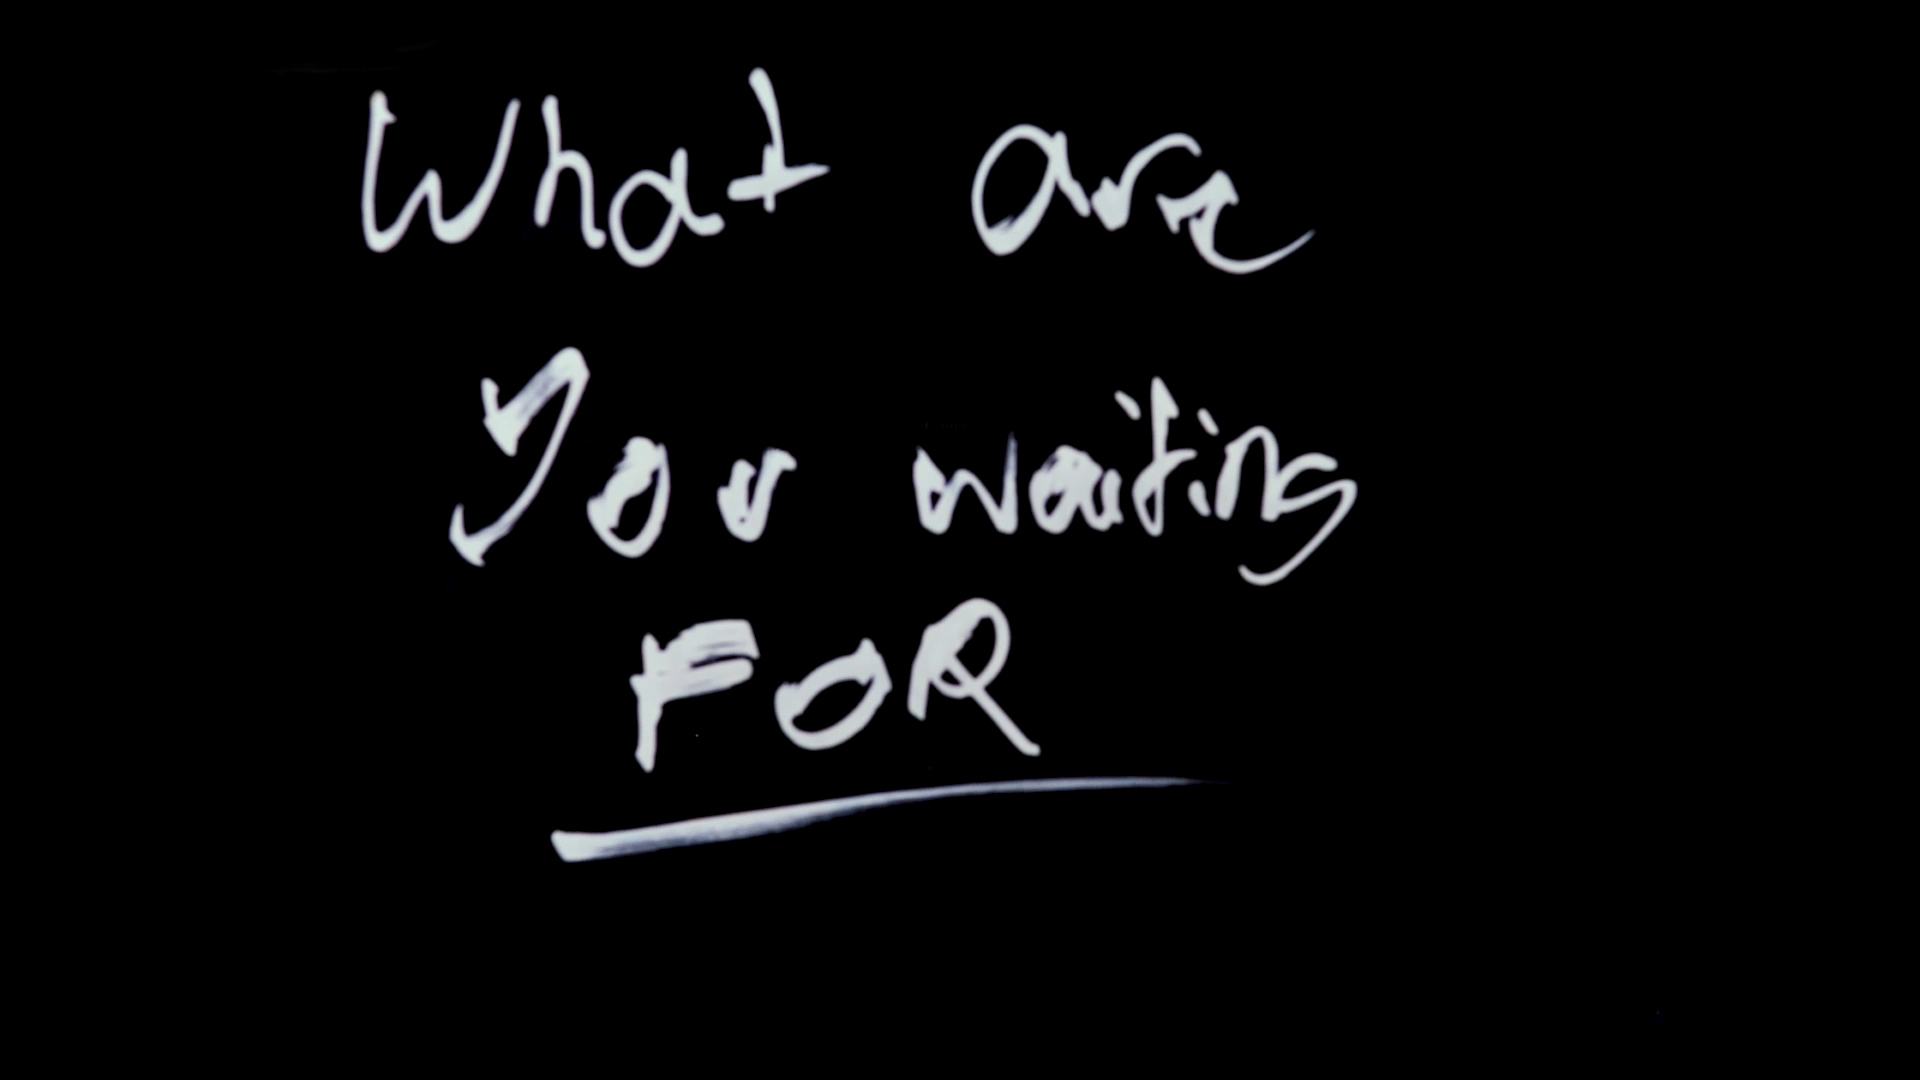 What are
You waiting
FOR